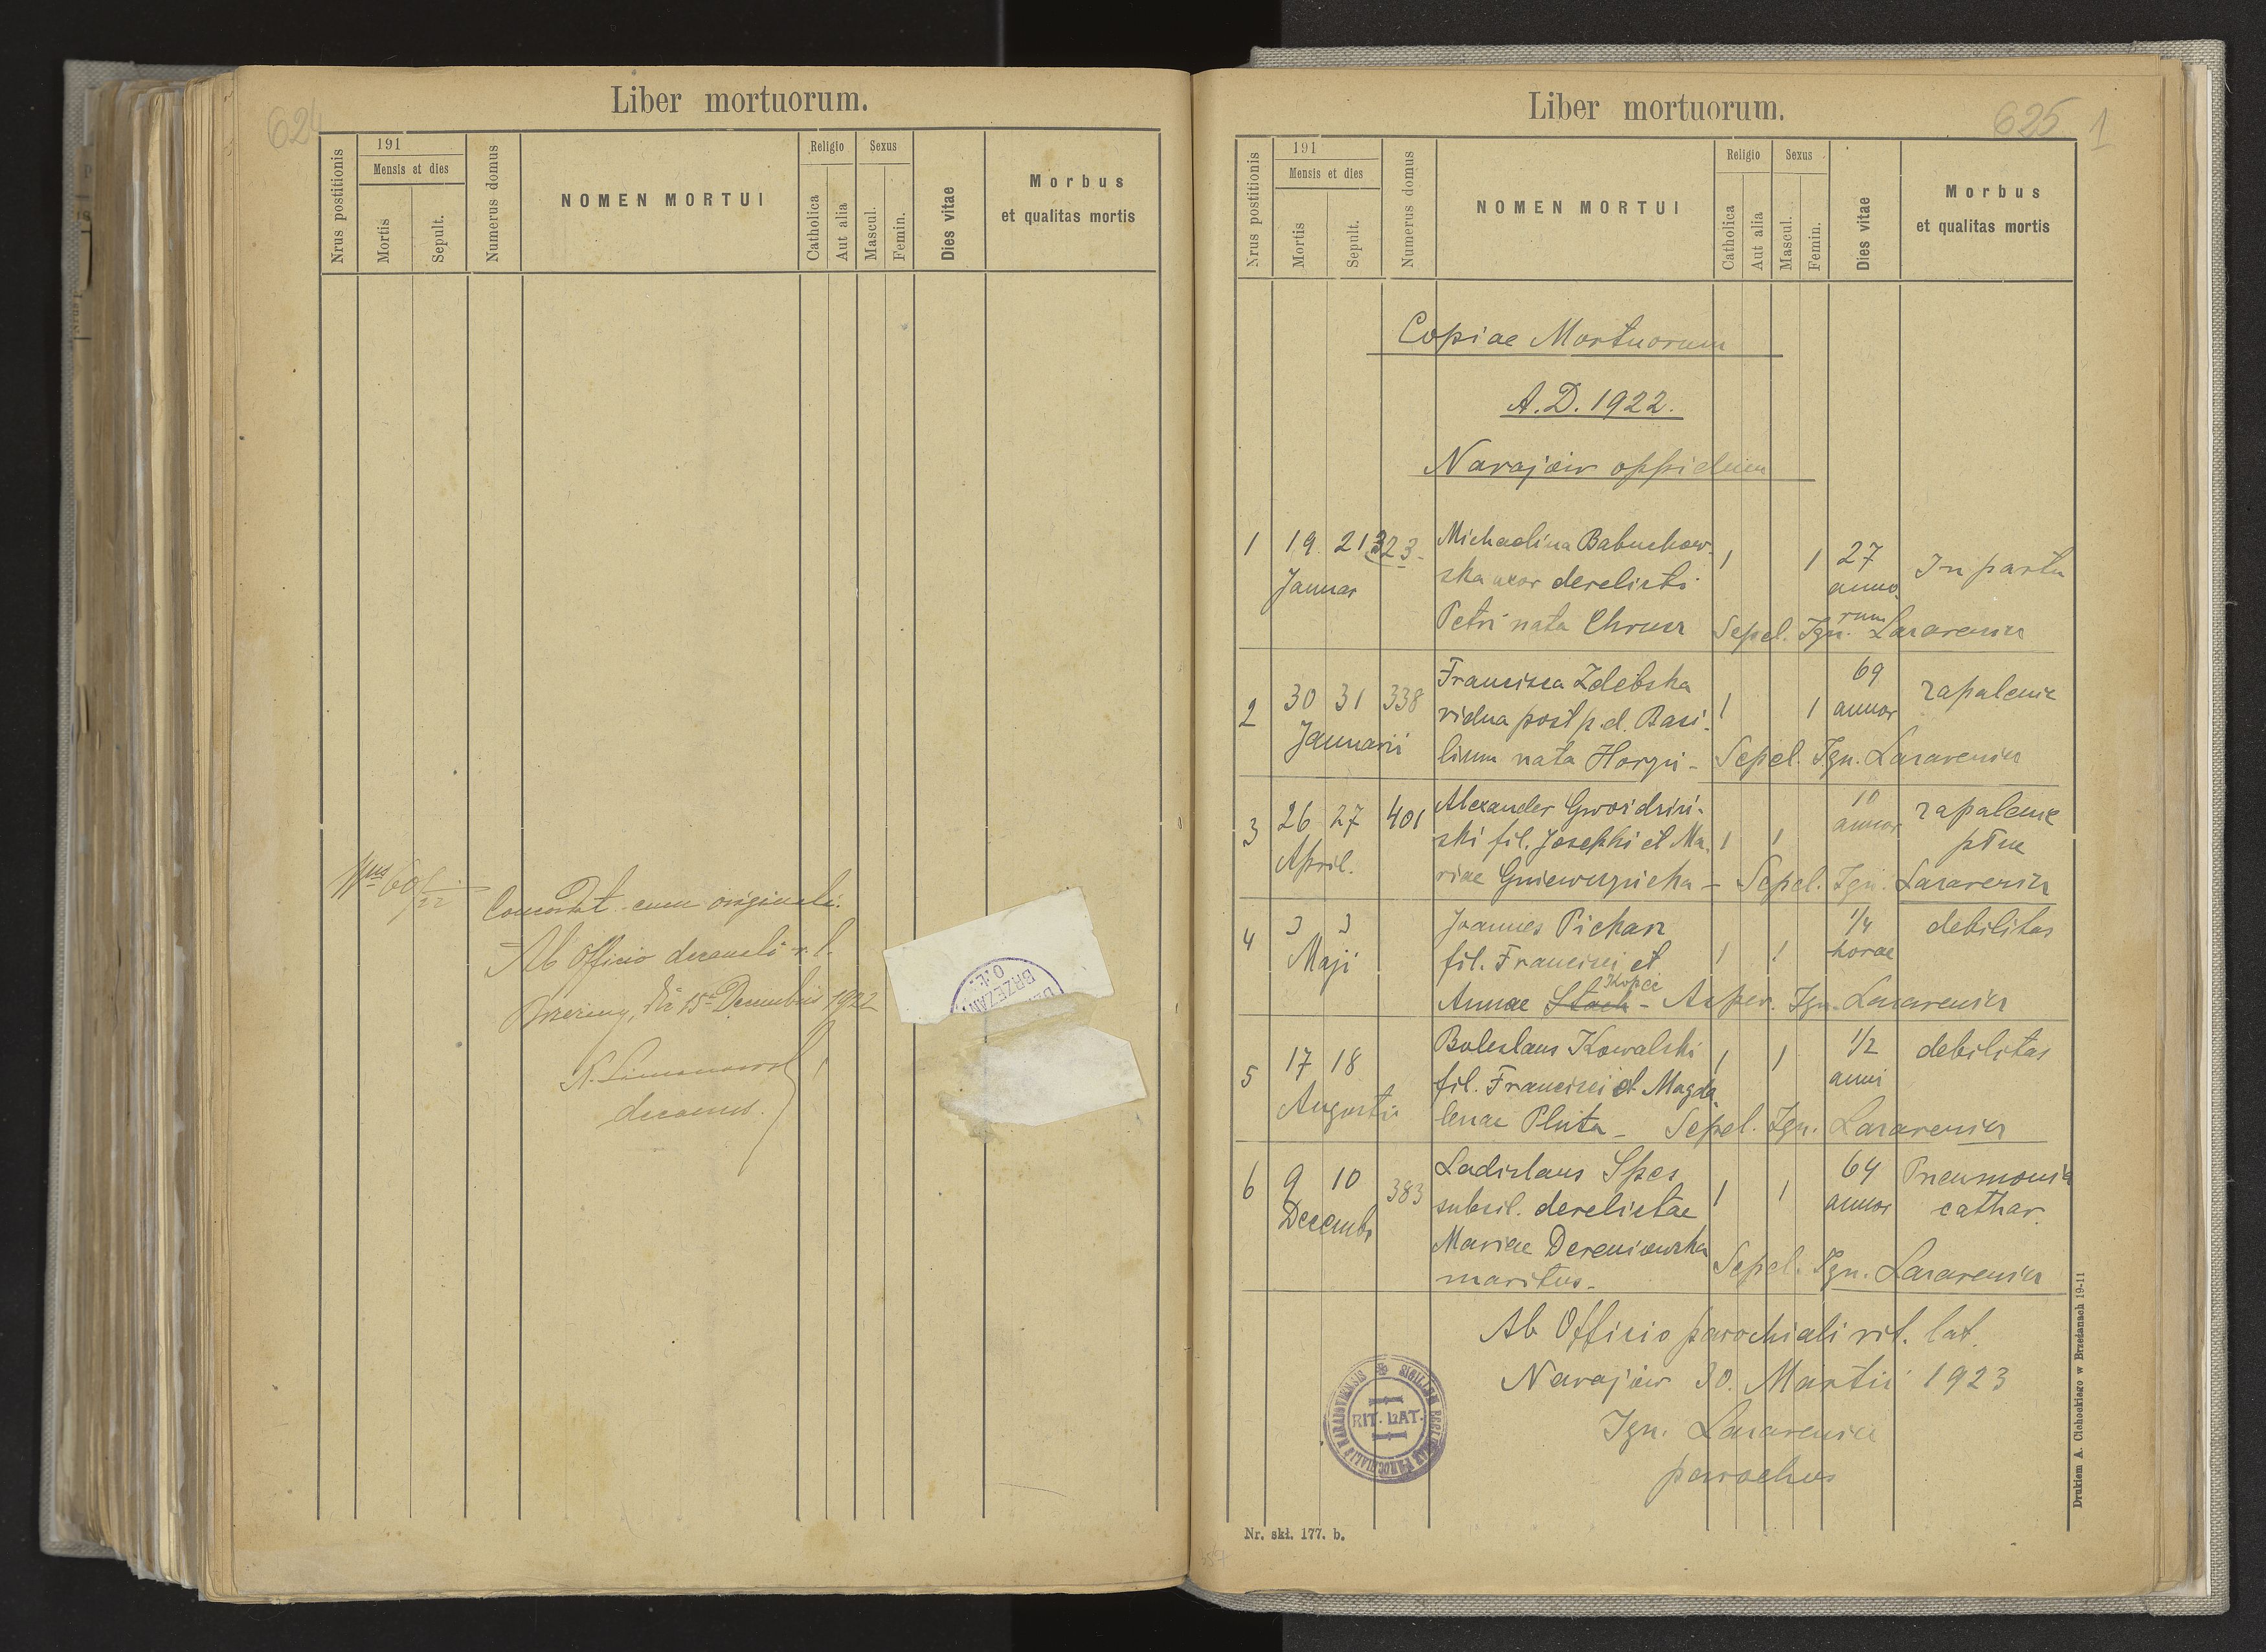 624
Liber mortuorum.
Nrus postitionis
191
Mensis et dies
Mortis
Sepult.
Numerus domus
NOMEN MORTUI
Religio
Catholica
Aut alia
Sexus
Mascul.
Femin.
Dies vitae
Morbus
et qualitas mortis
Concordat cum originali.
Ab Officio decanali r. l.
die 15 Decembris 1922
decanus.
625 1
Liber mortuorum.
Nrus postitionis
191
Mensis et dies
Mortis
Sepult.
Numerus domus
NOMEN MORTUI
Religio
Catholica
Aut alia
Sexus
Mascul.
Femin.
Dies vitae
Morbus
et qualitas mortis
Copiae Mortuorum
A. D. 1922.
Narajów oppidum
1 19 21 323 Michaelina Babuchow- 1 1 27 In partu
Januar ska uxor derelicti anno-
Petri nata Chrucz Sepel. Ign. rum Lazarewicz
2 30 31 338 Francisca Zdebska 1 1 69 zapalenie
Januarii vidua post p. d. Basi- annor
lium nata Horyń - Sepel. Ign. Lazarewicz
3 26 27 401 Alexander Gwoździń- 1 1 10 zapalenie
April. ski fil. Josephi et Ma- annor płuc
riae Gniewczycka - Sepel. Ign. Lazarewicz
4 3 3 Joannes Pichan 1 1 1/4 debilitas
Maji fil. Francisci et horae
Kopeć
Annae Stach - Asper. Ign. Lazarewicz
5 17 18 Boleslaus Kowalski 1 1 1/2 debilitas
Augusti fil. Francisci et Magda- anni
lenae Pluta - Sepel. Ign. Lazarewicz
6 9 10 383 Ladislaus Spes 1 1 64 Pneumonia
Decembr subsil. derelictae annor cathar.
Mariae Dereniowska
maritus - Sepel. Ign. Lazarewicz
Ab Officio parochiali rit. lat.
Narajów 30. Martii 1923
Ign. Lazarewicz
parochus
RIT. LAT.
Nr. skł. 177. b.
Drukiem A. Cichockiego w Brzeżanach 19-11